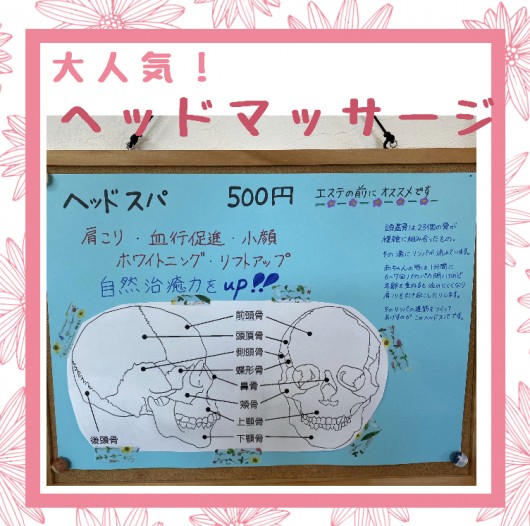 大人気！
ヘッドマッサージ
ヘッドスパ 500円 エステの前に オススメです
肩こり・血行促進・小顔
ホワイトニング・リフトアップ
自然治癒力をup!!
頭蓋骨は23個の骨が
複雑に組み合ったもの。
その溝にリンパが流れています。
赤ちゃんの時は1分間に
前頭骨
頭頂骨
側頭骨
蝶形骨
鼻骨
頬骨
上顎骨
下顎骨
後頭骨